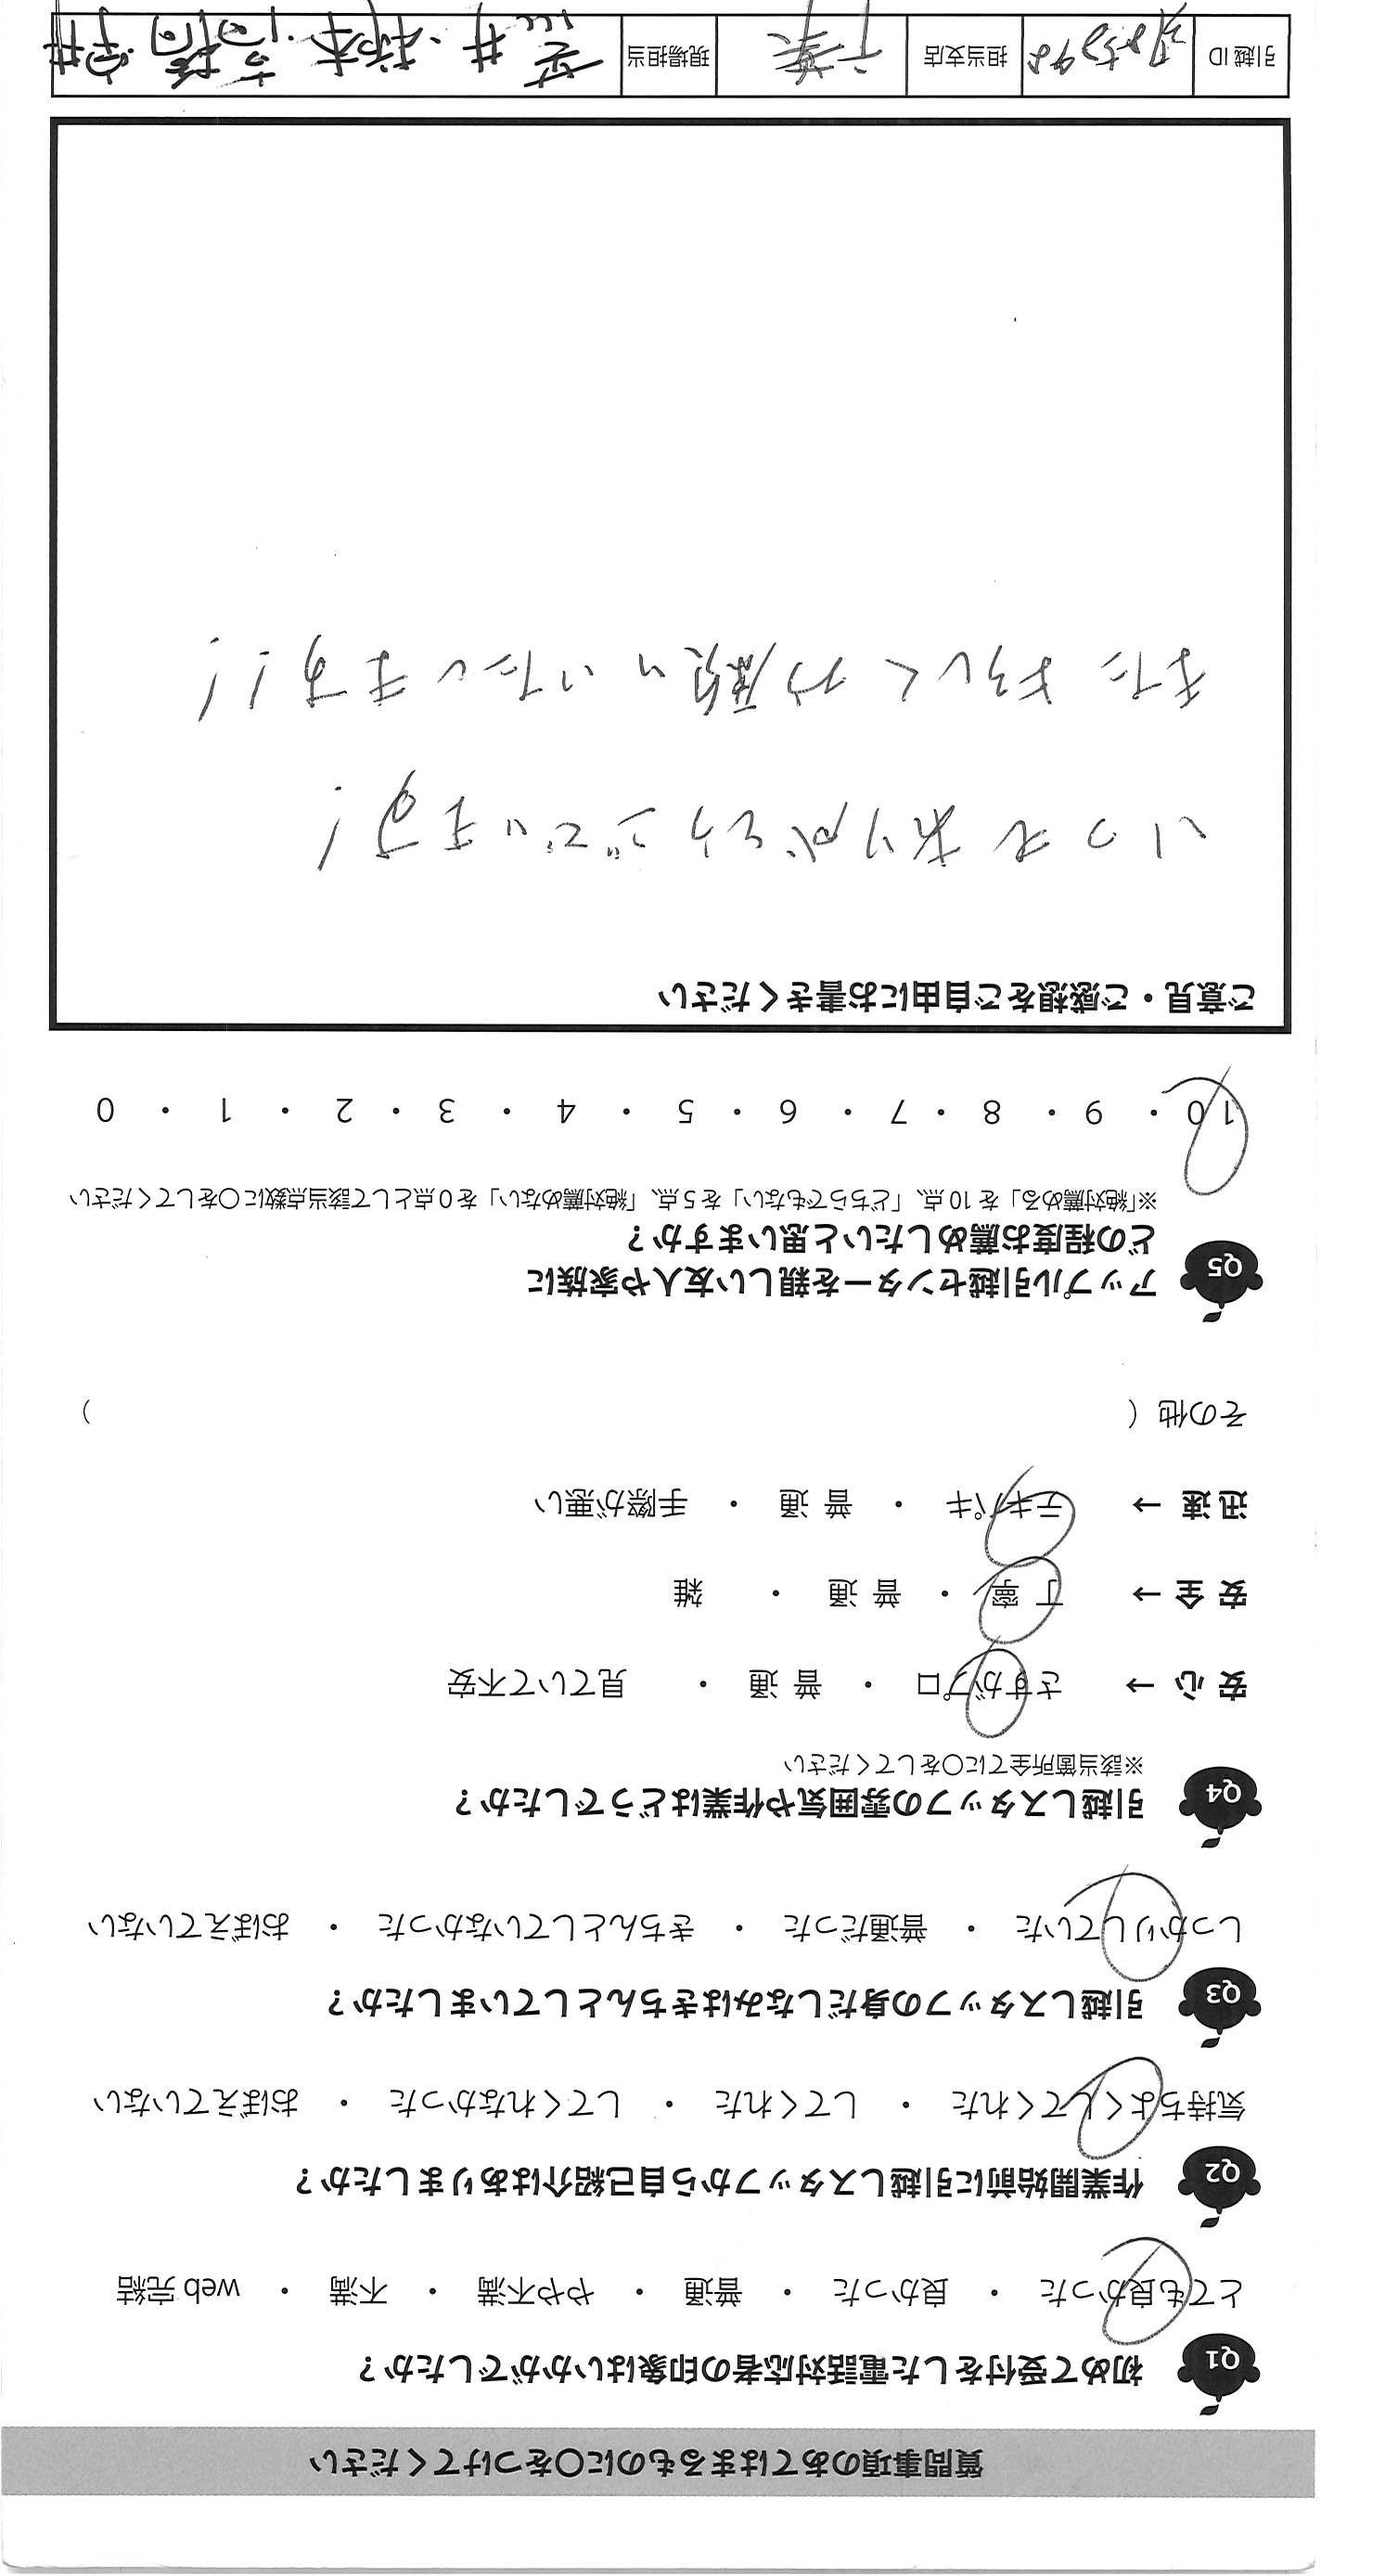 質問事項のあてはまるものに○をつけてください
Q1 初めて受付をした電話対応者の印象はいかがでしたか？
とても良かった ・ 良かった ・ 普通 ・ やや不満 ・ 不満 ・ web 完結
Q2 作業開始前に引越しスタッフから自己紹介はありましたか？
気持ちよくしてくれた ・ してくれた ・ してくれなかった ・ おぼえていない
Q3 引越しスタッフの身だしなみはきちんとしていましたか？
しっかりしていた ・ 普通だった ・ きちんとしていなかった ・ おぼえていない
Q4 引越しスタッフの雰囲気や作業はどうでしたか？
※該当箇所全てに○をしてください
安 心 → さすがプロ ・ 普 通 ・ 見ていて不安
安 全 → 丁 寧 ・ 普 通 ・ 雑
迅 速 → テキパキ ・ 普 通 ・ 手際が悪い
その他（ ）
Q5 アップル引越センターを親しい友人や家族に
どの程度お薦めしたいと思いますか？
※「絶対薦める」を 10 点、「どちらでもない」を 5 点、「絶対薦めない」を 0 点として該当点数に○をしてください
10 ・ 9 ・ 8 ・ 7 ・ 6 ・ 5 ・ 4 ・ 3 ・ 2 ・ 1 ・ 0
ご意見・ご感想をご自由にお書きください
いつもありがとうございます！
またよろしくお願いいたします！！
引越 ID 担当支店 千葉 現場担当